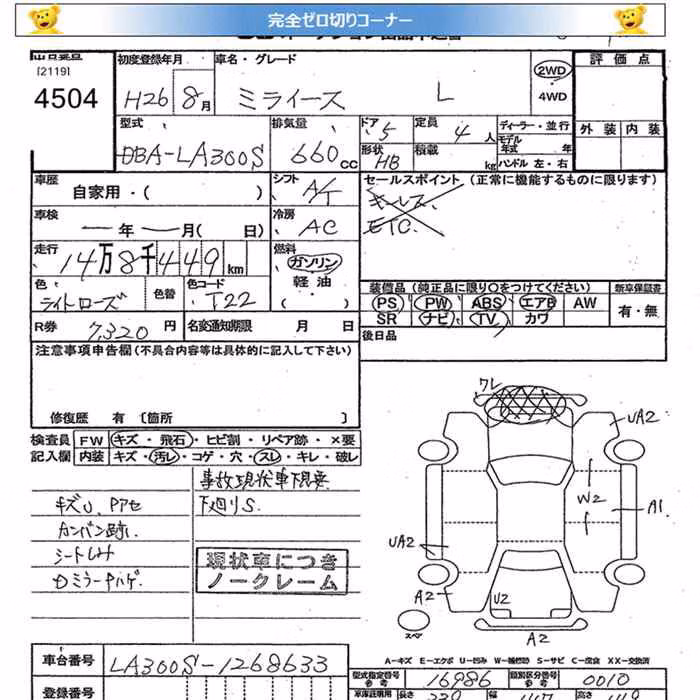 完全ゼロ切りコーナー
[2119]
4504
初度登録年月
H26 8月
車名・グレード
ミライース L
2WD
4WD
評価点
外装 内装
型式
DBA-LA300S
排気量
660cc
ドア 5
形状 HB
定員 4人
積載 kg
ディーラー・並行
モデル年式 年
ハンドル 左・右
車歴
自家用・( )
シフト A/T
セールスポイント (正常に機能するものに限ります)
キーレス
ETC
車検
年 月( 日)
冷房 AC
走行
14万8千449km
燃料
ガソリン
軽油
( )
色
ライトローズ
色替
色コード
T22
装備品(純正品に限り○をつけてください)
PS PW ABS エアB AW
SR ナビ TV カワ
新車保証書
有・無
R券 7,320 円
名変通知期限 月 日
後日品
注意事項申告欄(不具合内容等は具体的に記入して下さい)
修復歴 有〔箇所 〕
検査員記入欄
FW キズ・飛石・ヒビ割・リペア跡・×要
内装 キズ・汚レ・コゲ・穴・スレ・キレ・破レ
事故現状車下見要
下廻りS.
キズU、Pアセ
カンバン跡.
シートしみ
現状車につき
ノークレーム
クレ
UA2
W2
A1
UA2
A2
U2
A2
A2
スペア
A-キズ E-エクボ U-凹み W-補修跡 S-サビ C-腐食 XX-交換済
車台番号
LA300S-1268633
型式指定番号 参考
16986
類別区分番号 参考
0010
登録番号
車庫証明用
長さ